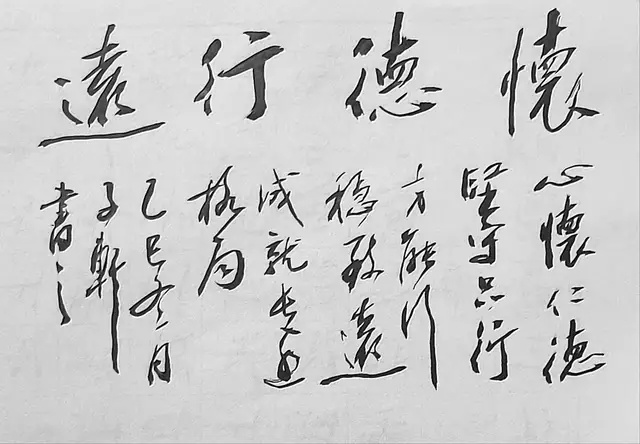 懷德行遠
心懷仁德
堅守品行
方能行
穩致遠
成就長遠
格局
乙巳冬月
子軒
書之